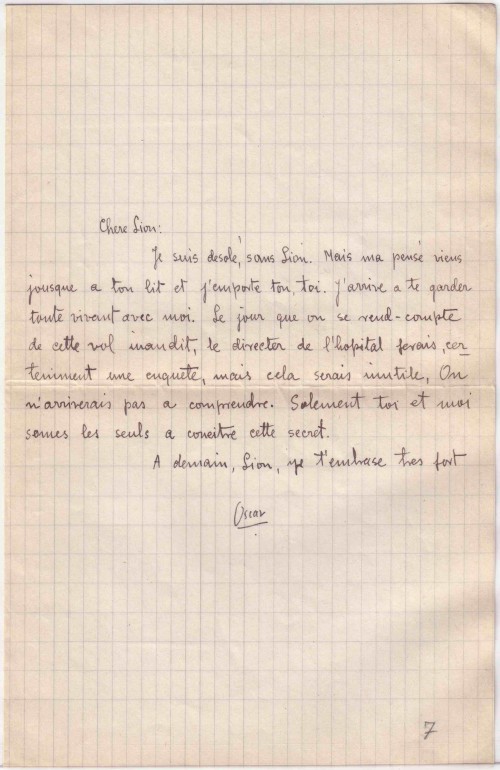 Chere Lion:
Je suis desolé, sans Lion. Mais ma pensé viens
jousque a ton lit et j'emporte ton, toi. J'arrive a te garder
toute vivent avec moi. Le jour que on se rend-compte
de cette vol inaudit, le directer de l'hopital ferais, cer
teniment une enquete, mais cela serais inutile, On
n'arriverais pas a comprendre. Solement toi et moi
somes les seuls a coneitre cette secret.
A demain, Lion, ye t'embrase tres fort
Oscar
7